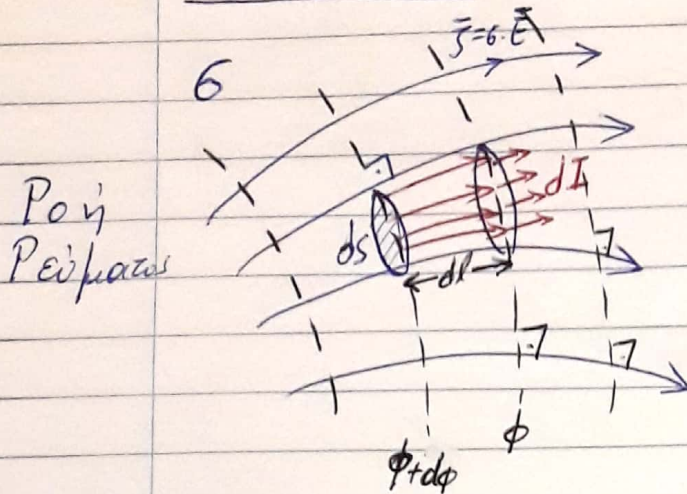 J̄=σ·Ē
σ
Ροή
Ρεύματος
dI
ds
dl
φ
φ+dφ